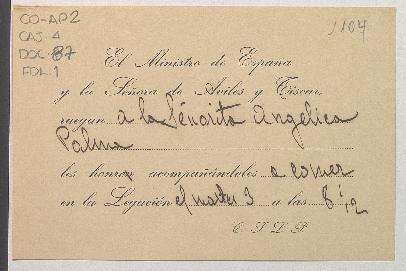 CO-AP2
CAJ. 4
DOC. 87
FDL. 1
1104
El Ministro de España
y la Señora de Aviles y Tiscar
ruegan a la Señorita Angelica
Palma
les honren acompañándoles a comer
en la Legación el martes 3 a las 8 1/2